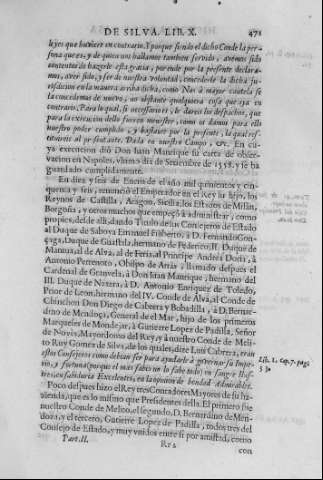 DE SILVA. LIB. X. 471
leyes que huviere en contrario. Y porque siendo el dicho Conde la per-
sona que es, y de quien nos hallamos tambien servido, avemos sido
contentos de hazerle esta gracia, por ende por la presente declara-
mos, aver sido, y ser de nuestra voluntad, concederle la dicha ju-
risdicion en la manera arriba dicha, como Nos à mayor cautela se
la concedemos de nuevo, no obstante qualquiera cosa que aya en
contrario. Para lo qual, si necessario es, le dareis los despachos, que
para la execucion dello fueren menester, como os damos para ello
nuestro poder cumplido, y bastante por la presente, la qual res-
tituireis al presentante. Data en nuestro Campo, &c. En cu-
ya execucion diò Don Iuan Manrique su carta de obser-
vacion en Napoles, ultimo dia de Setiembre de 1558. y se ha
guardado cumplidamente.
En diez y seis de Enero de el año mil quinientos y cin-
quenta y seis, renunciò el Emperador en el Rey su hijo, los
Reynos de Castilla, Aragon, Sicilia, los Estados de Milàn,
Borgoña, y otros muchos que empeçò à administrar, como
propios, desde allì, dando Titulo de sus Consejeros de Estado
al Duque de Saboya Emanuel Filiberto, à D. Fernando Gon-
çaga, Duque de Guastala, hermano de Federico II. Duque de
Mantua, al de Alva, al de Feria, al Principe Andrea Doria, à
Antonio Perrenoto, Obispo de Arràs, llamado despues el
Cardenal de Granvela, à Don Iuan Manrique, hermano del
III. Duque de Naxera, à D. Antonio Enriquez de Toledo,
Prior de Leon, hermano del IV. Conde de Alva, al Conde de
Chinchon Don Diego de Cabrera y Bobadilla, à D. Bernar-
dino de Mendoça, General de el Mar, hijo de los primeros
Marqueses de Mondejar, à Gutierre Lopez de Padilla, Señor
de Novès, Mayordomo del Rey, y à nuestro Conde de Meli-
to Ruy Gomez de Silva, de los quales, dize Luis Cabrera, eran
estos Consejeros como debian ser para ayudarle à governar su Impe-
rio, y fortuna (porque el mas sabio no lo sabe todo) en sangre Ilus-
tres, en sabiduria Excelentes, en la opinion de bondad Admirables.
Hist. l. 1. cap. 7. pag.
Poco despues hizo el Rey tres Contadores Mayores de su ha-
zienda, que es lo mismo que Presidentes della. El primero fue
nuestro Conde de Melito, el segundo, D. Bernardino de Men-
doça, y el tercero, Gutierre Lopez de Padilla, todos tres del
Consejo de Estado, y muy unidos entre sì por amistad, como
Part. II. Rr 2 con